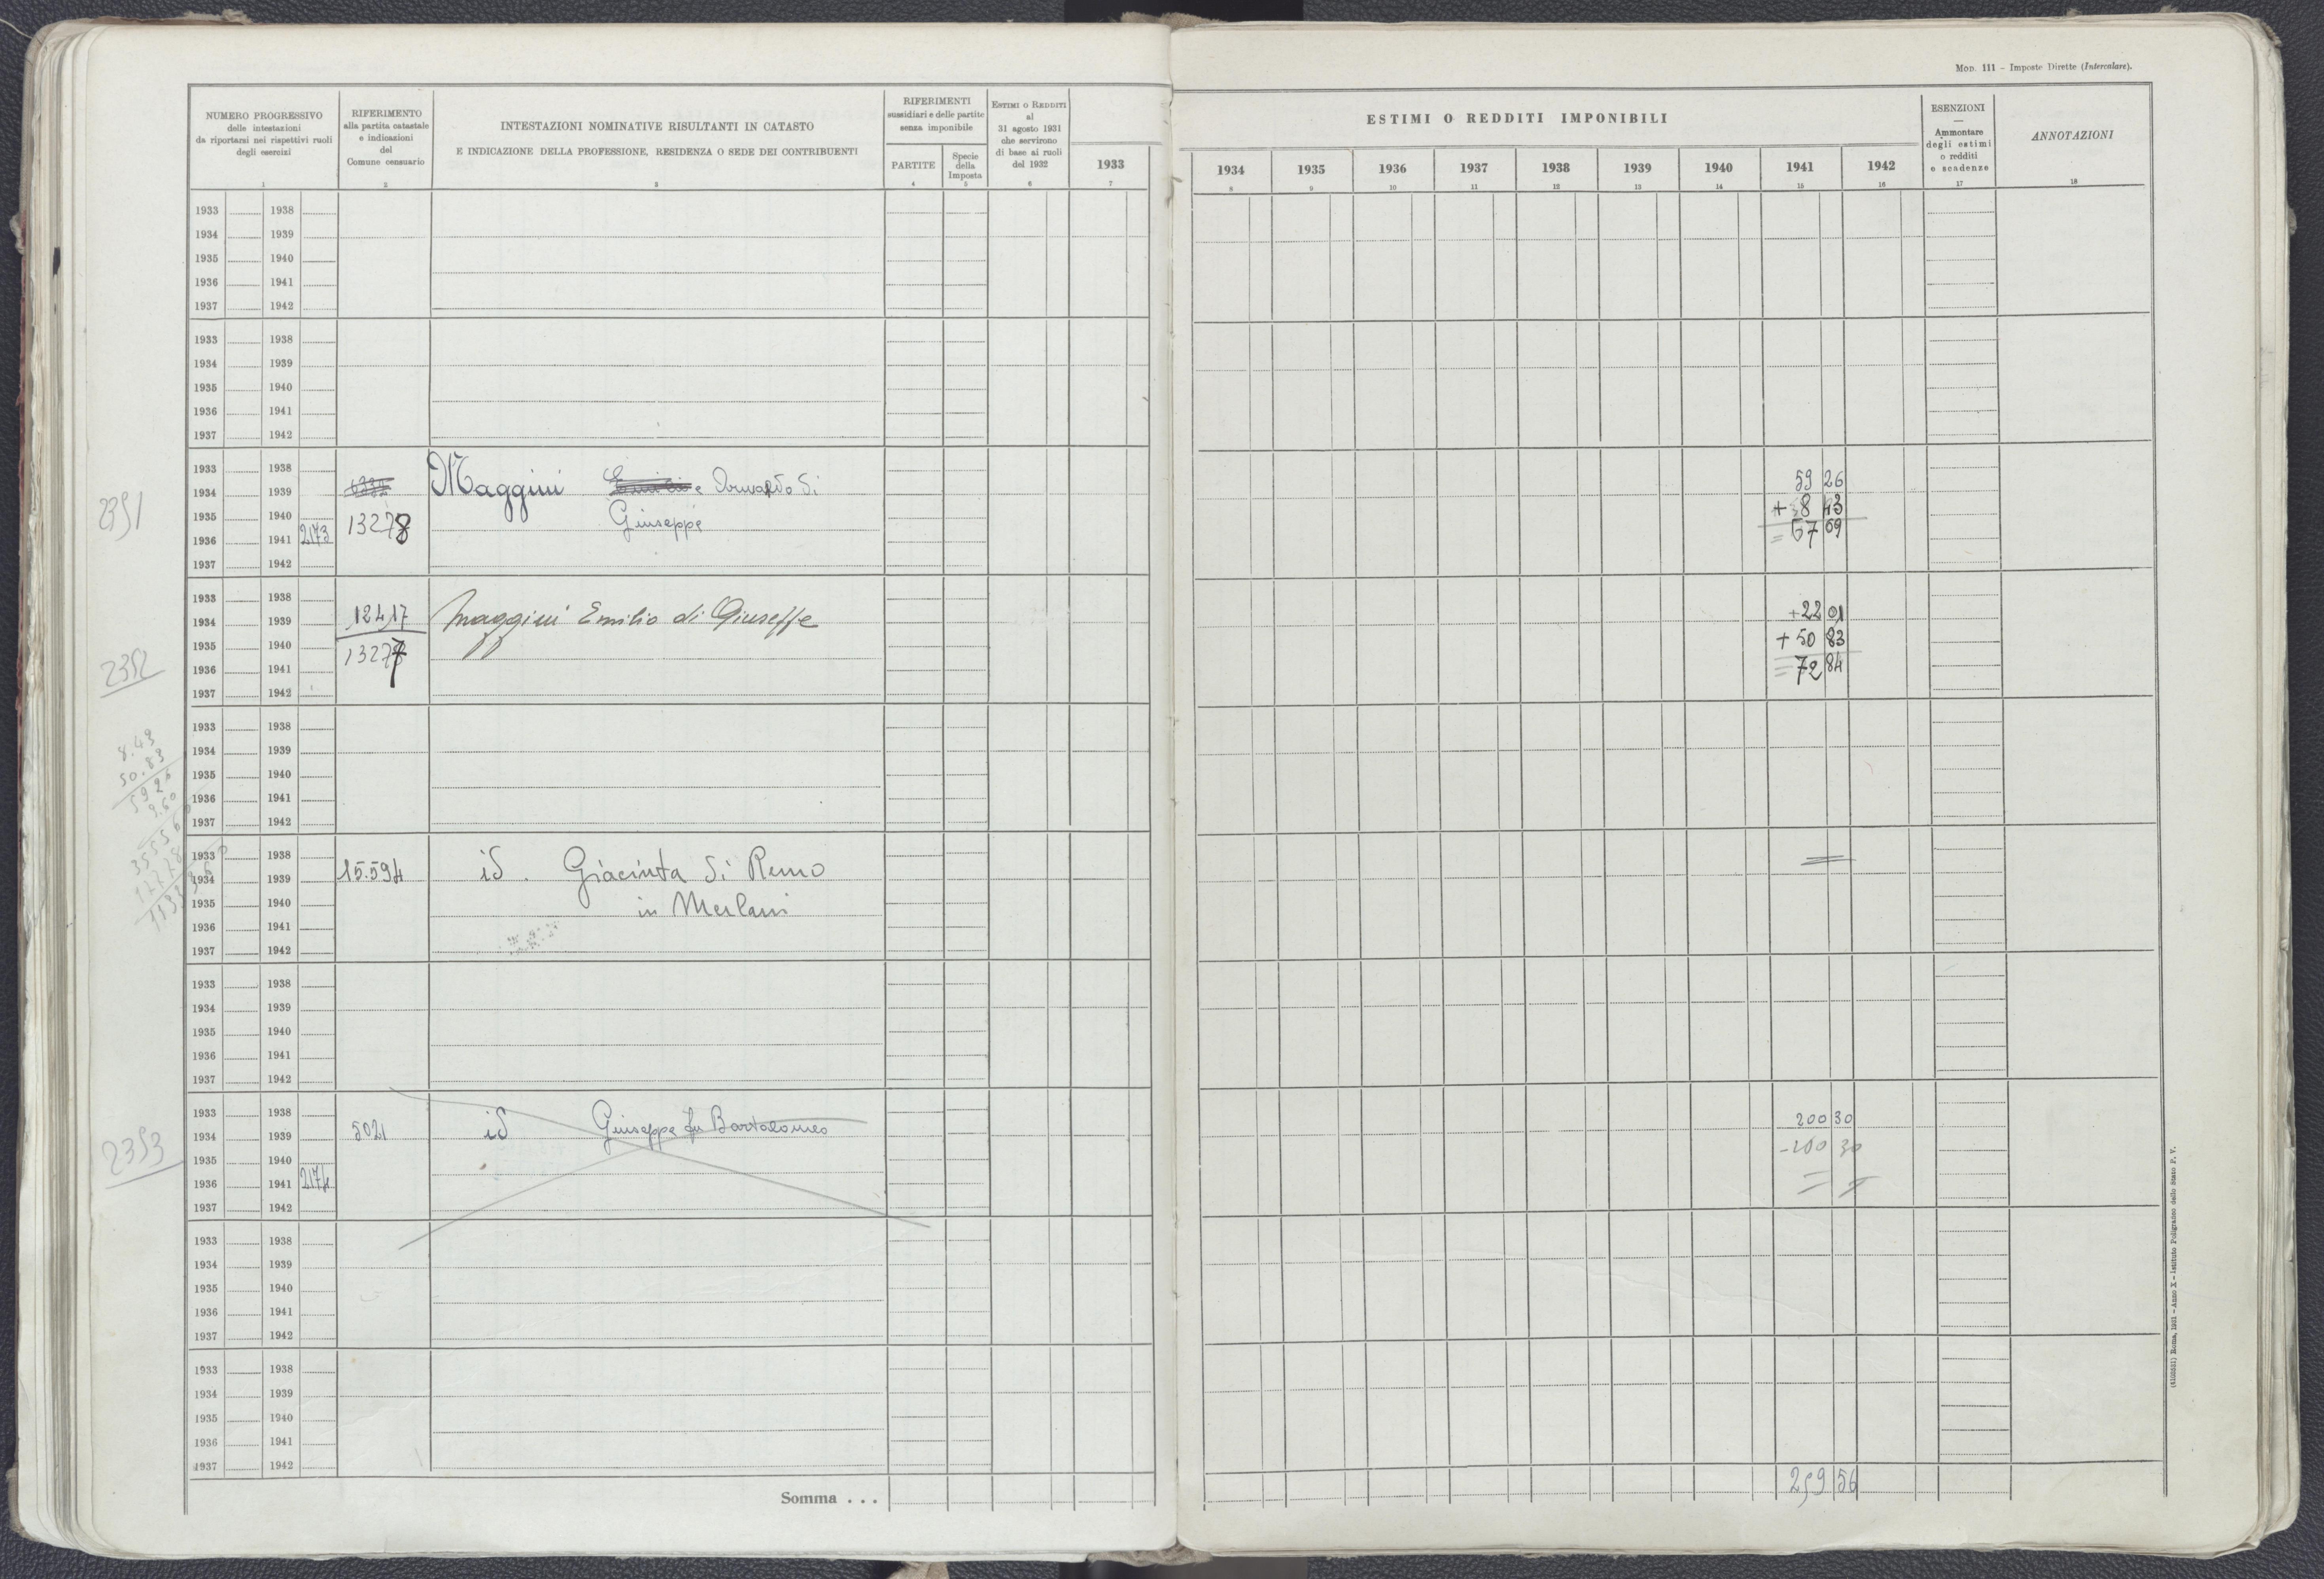 Mod. 111 – Imposte Dirette (Intercalare).
NUMERO PROGRESSIVO
delle intestazioni
da riportarsi nei rispettivi ruoli
degli esercizi
1
RIFERIMENTO
alla partita catastale
e indicazioni
del
Comune censuario
2
INTESTAZIONI NOMINATIVE RISULTANTI IN CATASTO
E INDICAZIONE DELLA PROFESSIONE, RESIDENZA O SEDE DEI CONTRIBUENTI
3
RIFERIMENTI
sussidiari e delle partite
senza imponibile
PARTITE
4
Specie
della
Imposta
5
Estimi o Redditi
al
31 agosto 1931
che servirono
di base ai ruoli
del 1932
6
1933
7
ESTIMI O REDDITI IMPONIBILI
1934 1935 1936 1937 1938 1939 1940 1941 1942
8 9 10 11 12 13 14 15 16
ESENZIONI
—
Ammontare
degli estimi
o redditi
e scadenze
17
ANNOTAZIONI
18
1933 1938
1934 1939
1935 1940
1936 1941
1937 1942
1933 1938
1934 1939
1935 1940
1936 1941
1937 1942
2351
1933 1938
1934 1939 Maggini Emilio e Dornaldo di 59 26
1935 1940 13278 Giuseppe + 8 43
1936 1941 2173 = 67 69
1937 1942
2352
1933 1938
1934 1939 12417 Maggini Emilio di Giuseppe +22 01
1935 1940 13277 + 50 83
1936 1941 = 72 84
1937 1942
8.43
50.83
59 26
1933 1938
1934 1939
1935 1940
1936 1941
1937 1942
1933 1938 =
1934 1939 15.594 id. Giacinta di Remo
1935 1940 in Merlani
1936 1941
1937 1942
1933 1938
1934 1939
1935 1940
1936 1941
1937 1942
2353
1933 1938 200 30
1934 1939 5021 id Giuseppe fu Bartolomeo
1935 1940 -200 30
1936 1941 2174 = =
1937 1942
1933 1938
1934 1939
1935 1940
1936 1941
1937 1942
1933 1938
1934 1939
1935 1940
1936 1941
1937 1942
Somma . . . 259 56
(4105521) Roma, 1931 – Anno X – Istituto Poligrafico dello Stato P. V.